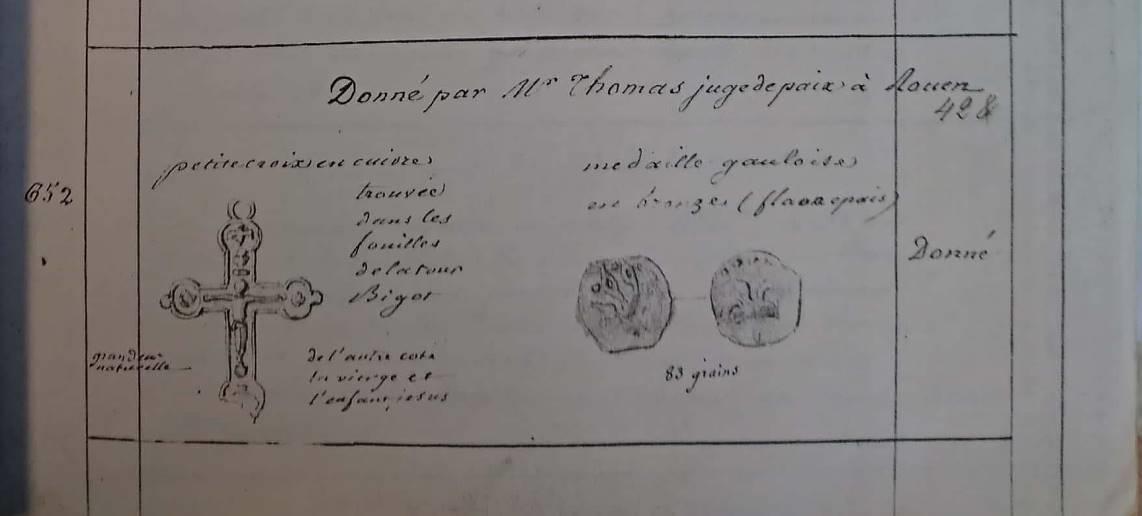 Donné par Mr Thomas juge de paix à Rouen
428
652
petite croix en cuivre
trouvée
dans les
fouilles
de la tour
Bigot
grandeur
naturelle
de l'autre coté
la vierge et
l'enfant jesus
medaille gauloise
en bronze (flan epais)
83 grains
Donné